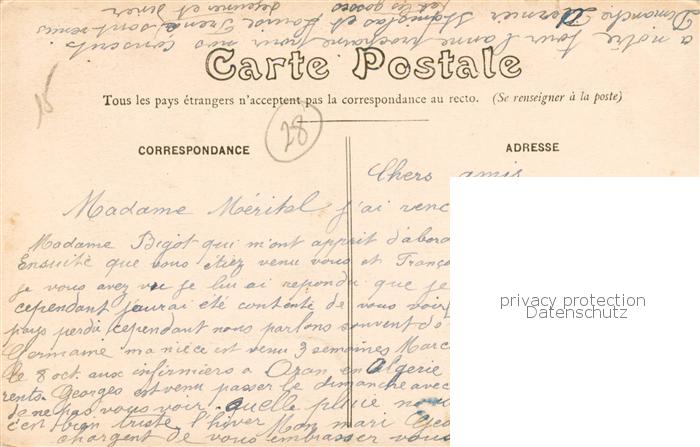 a notre tour l'anne prochaine pour nos conscrits
Dimanche dernier Stanislas et Louise Trena sont venus
et les gosses dejeuner et diner
Carte Postale
Tous les pays étrangers n'acceptent pas la correspondance au recto. (Se renseigner à la poste)
15
28
CORRESPONDANCE
ADRESSE
Chers amis
Madame Méritel j'ai renc
Madame Bigot qui m'ont apprit d'abord
Ensuite que vous étiez venu vous et Franço
je vous avez vu je lui ai repondu que je
cependant j'aurai été contente de vous voir
pays perdu cependant nous parlons souvent d
Germaine ma niece est venu 3 semaines Marc
le 8 oct. aux infirmiers a Oran en Algerie
rents. Georges est venu passer le dimanche avec
de ne pas vous voir. quelle pluie no
c'est bien triste l'hiver Mon mari Geo
chargent de vous embrasser vous
privacy protection
Datenschutz